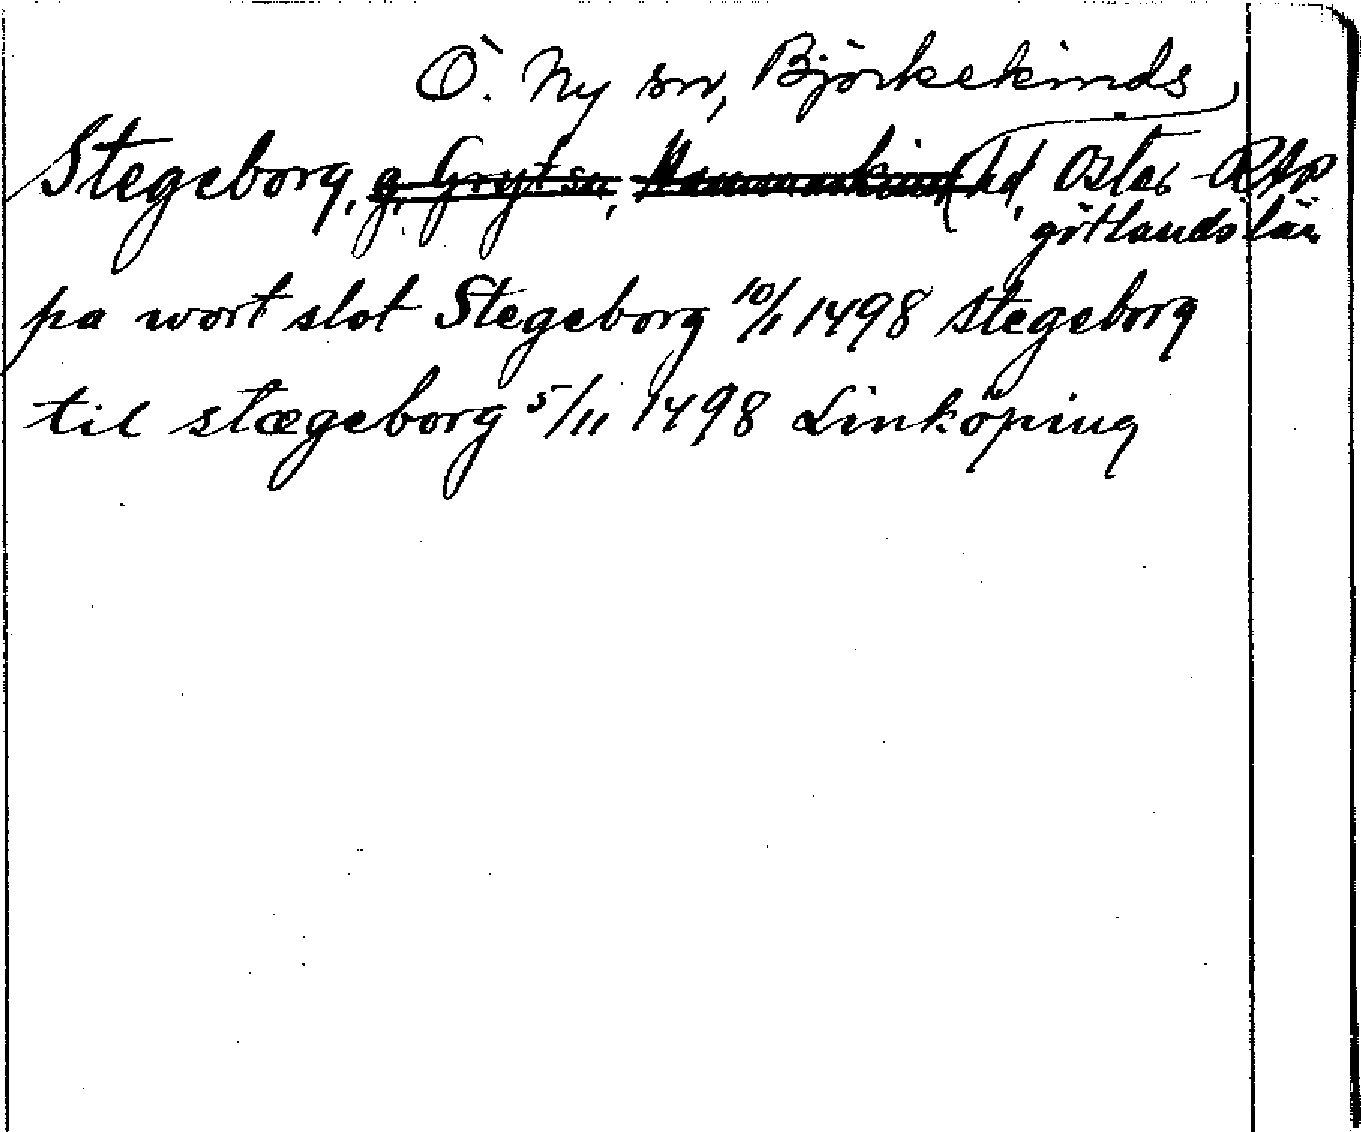 Ö. Ny sn, Björkekinds
Stegeborg, g, Gryt sn, Hammarkinds hd, Öster- RAp
götlands län
pa wort slot Stegeborg 10/1 1498 Stegeborg
til stægeborg 5/11 1498 Linköping